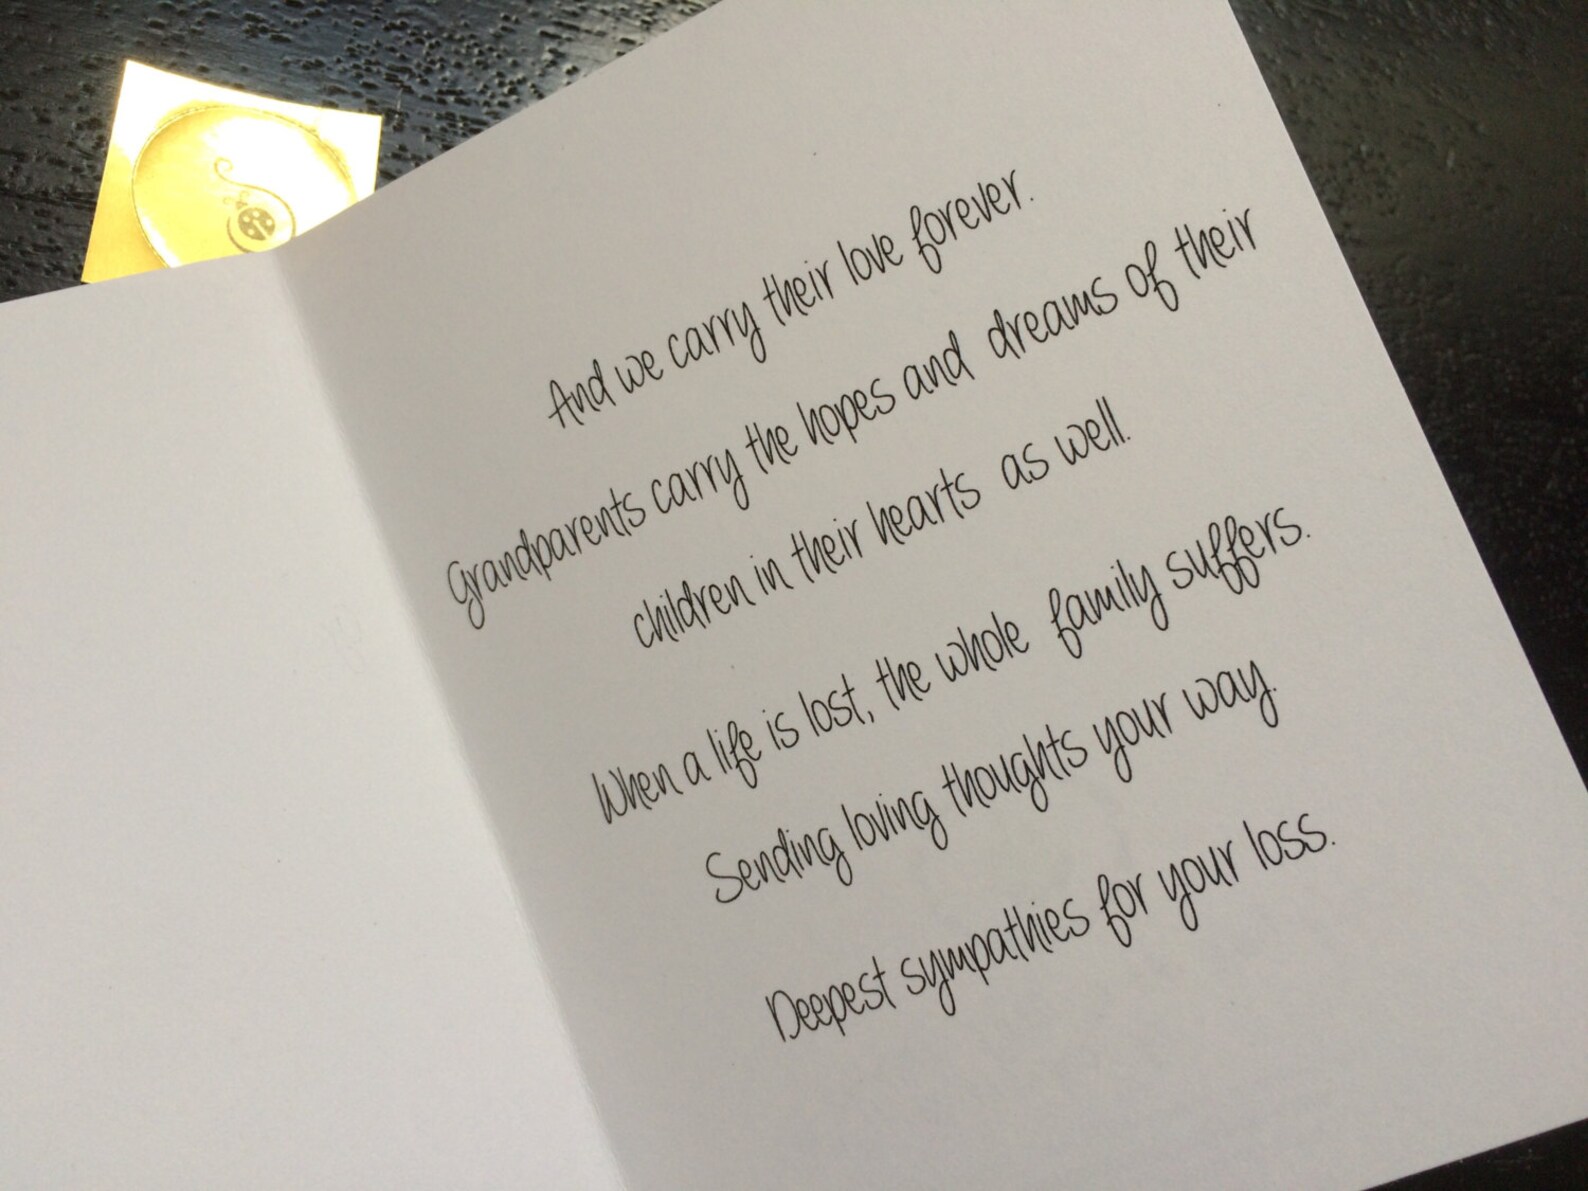 And we carry their love forever.
Grandparents carry the hopes and dreams of their
children in their hearts as well.
When a life is lost, the whole family suffers.
Sending loving thoughts your way.
Deepest sympathies for your loss.